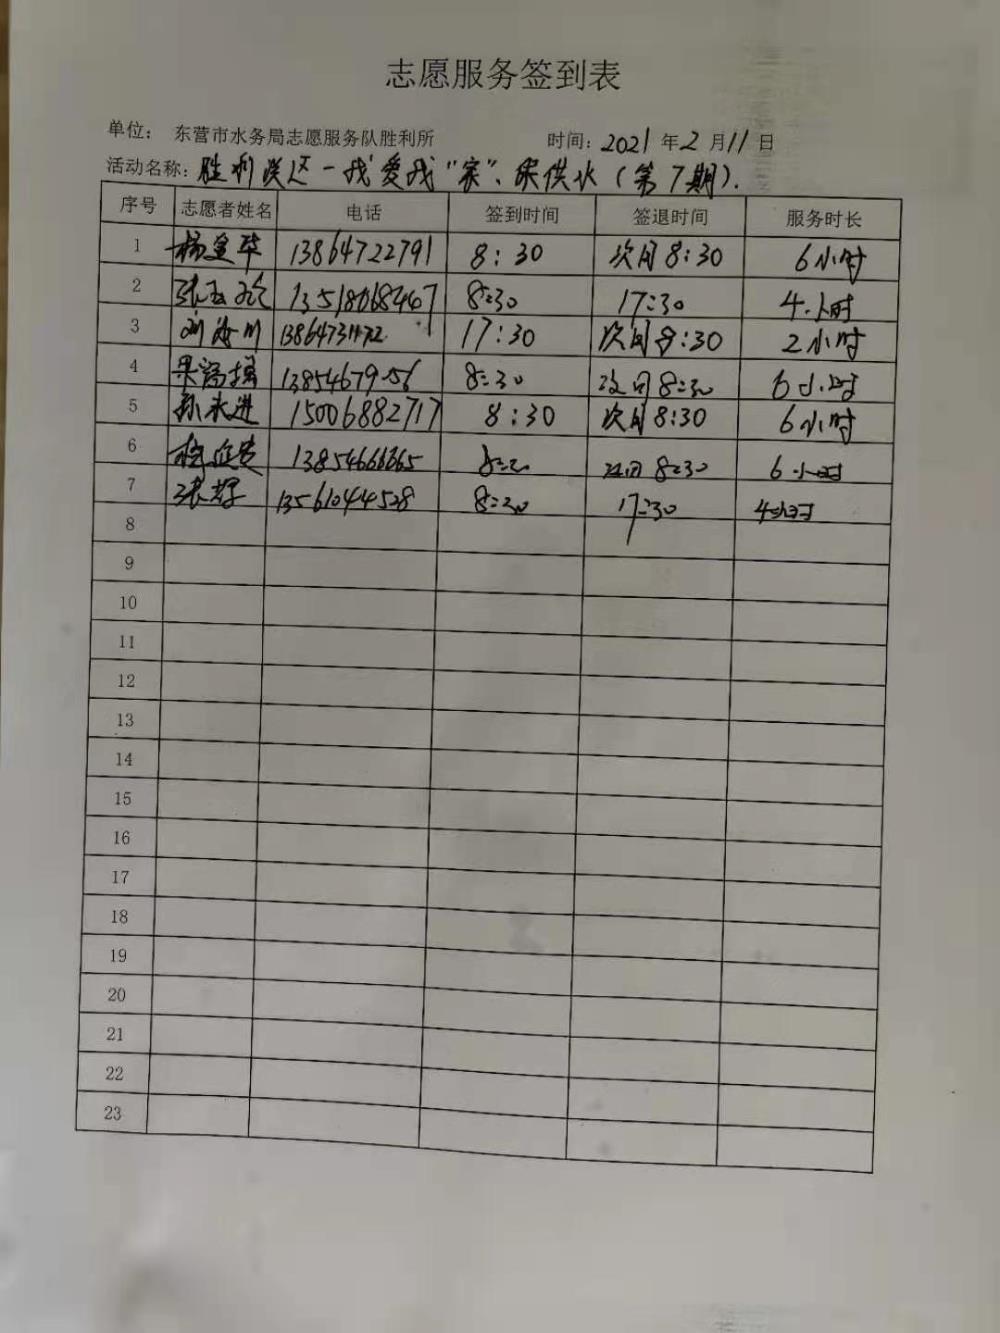 志愿服务签到表
单位： 东营市水务局志愿服务队胜利所 时间：2021 年 2 月 11 日
活动名称：胜利 一我爱我“家”、保供水（第7期）.
序号 志愿者姓名 电话 签到时间 签退时间 服务时长
1 杨建华 13864722791 8:30 次日8:30 6小时
2 张 8:30 17:30 4小时
3 刘海川 17:30 次日8:30 2小时
4 8:30 次日8:30 6小时
5 孙永进 15006882717 8:30 次日8:30 6小时
6 13854666665 次日8:30 6小时
7 张 13561044528 8:30 17:30 4小时
8
9
10
11
12
13
14
15
16
17
18
19
20
21
22
23